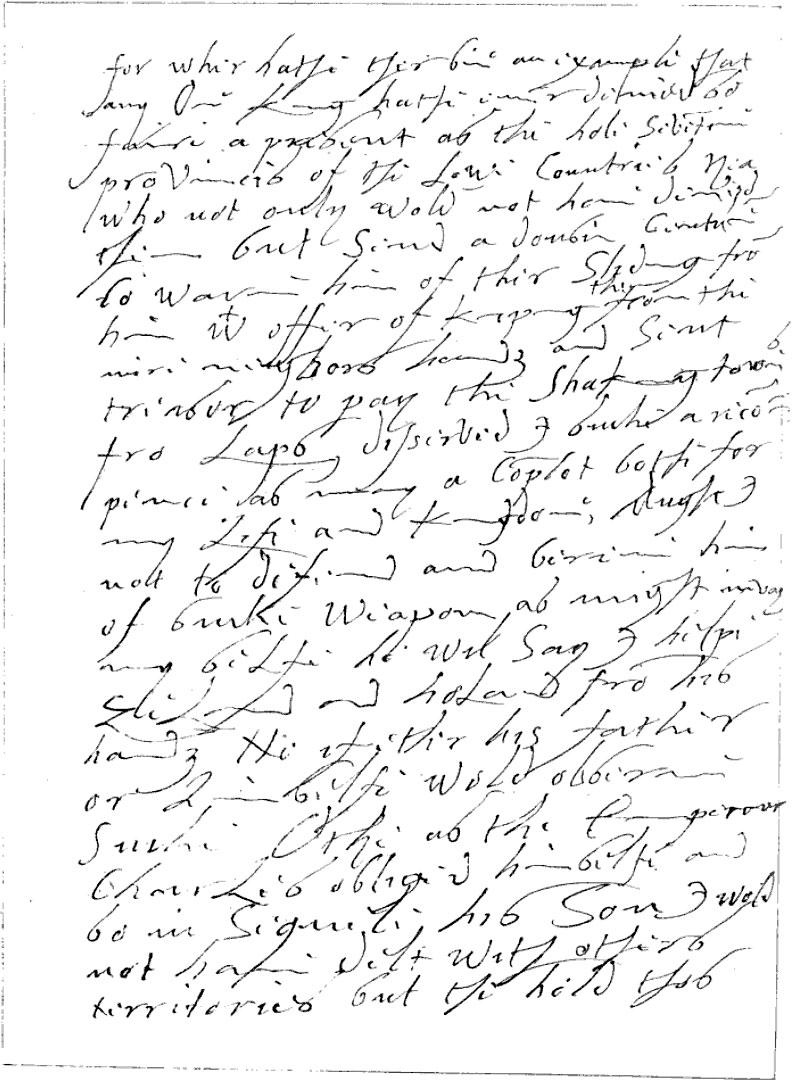 for wher hathe ther bin an exampel that
any One king hathe ever denied so
faire a present as the hole Seventine
provinces of the Lowe Countries yea
who not only wold not have denied
them but Send a dousin Centurie
to warne him of ther Sliding fro
him wt offer of keping them from the
nere neighbors handz and Sent
tresor to pay the Shaking townes
fro Laps, disserved I suche a recom
pence as many a Coplot bothe for
my Life and kingdome, Might I
not to defend and bereave him
of suche Weapons as might invay
my selfe he wil Say I helpe
Zeland and holand fro his
handz No if ether his father
or himselfe wold obserue
Suche Othe as the Emperour
Charles obliged himselfe and
so in Sequele his Son I wold
not have delt with others
territories but the hold thes